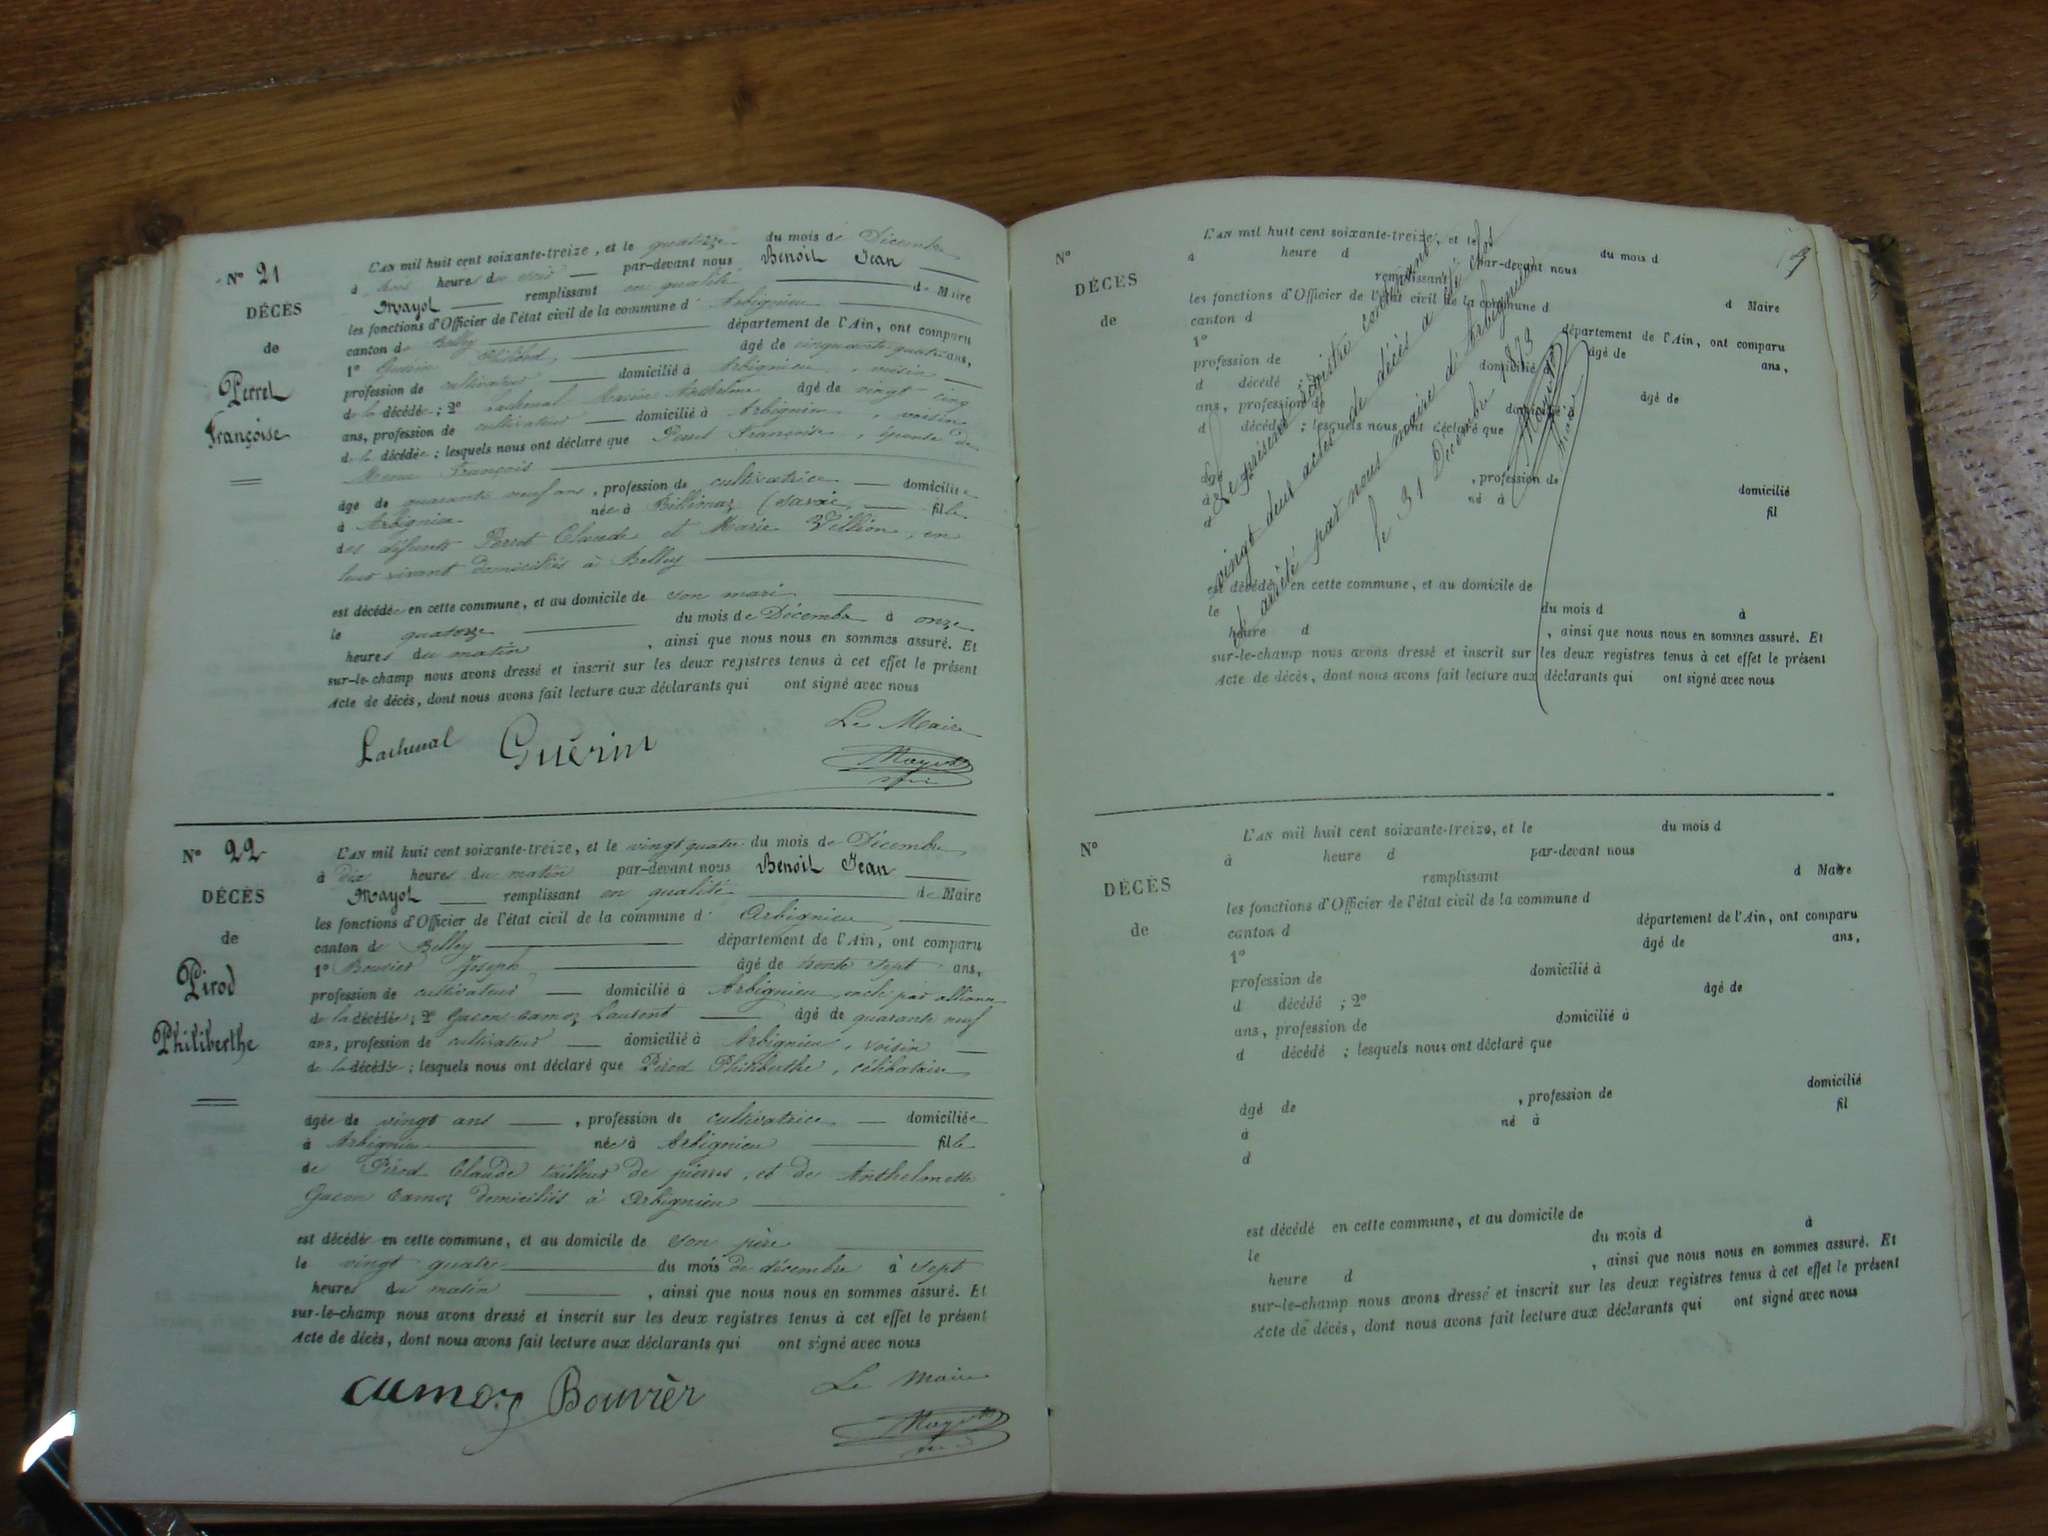 N° 21
DÉCÈS
de
Perret
Françoise
L'AN mil huit cent soixante-treize, et le quatorze du mois de Décembre
à trois heures du soir par-devant nous Benoit Jean
Mayol remplissant en qualité de Maire
les fonctions d'Officier de l'état civil de la commune d' Arbignieu
canton de Belley département de l'Ain, ont comparu
1° Guérin âgé de cinquante quatre ans,
profession de cultivateur domicilié à Arbignieu, voisin
de la décédée ; 2° Lachenal Marin Anthelme âgé de vingt-cinq
ans, profession de cultivateur domicilié à Arbignieu, voisin
de la décédée ; lesquels nous ont déclaré que Perret Françoise, épouse de
François
âgée de quarante neuf ans, profession de cultivatrice domiciliée
à Arbignieu née à Billimaz (Savoie fille
des défunts Perret Claude et Marie Villion, en
leur vivant domiciliés à Belley
est décédée en cette commune, et au domicile de son mari
le quatorze du mois de Décembre à onze
heures du matin, ainsi que nous nous en sommes assuré. Et
sur-le-champ nous avons dressé et inscrit sur les deux registres tenus à cet effet le présent
Acte de décès, dont nous avons fait lecture aux déclarants qui ont signé avec nous
Le Maire
Lachenal Guérin Mayol
N° 22
DÉCÈS
de
Pirod
Philiberthe
L'AN mil huit cent soixante-treize, et le vingt quatre du mois de Décembre
à dix heures du matin par-devant nous Benoit Jean
Mayol remplissant en qualité de Maire
les fonctions d'Officier de l'état civil de la commune d' Arbignieu
canton de Belley département de l'Ain, ont comparu
1° Bouvier Joseph âgé de trente sept ans,
profession de cultivateur domicilié à Arbignieu, oncle par alliance
de la décédée ; 2° Gacon Camoz Laurent âgé de quarante neuf
ans, profession de cultivateur domicilié à Arbignieu, voisin
de la décédée ; lesquels nous ont déclaré que Pirod Philiberthe, célibataire
âgée de vingt ans, profession de cultivatrice domiciliée
à Arbignieu née à Arbignieu fille
de Pirod Claude tailleur de pierres, et de Anthelmette
Gacon Camoz domiciliés à Arbignieu
est décédée en cette commune, et au domicile de son père
le vingt quatre du mois de décembre à sept
heures du matin, ainsi que nous nous en sommes assuré. Et
sur-le-champ nous avons dressé et inscrit sur les deux registres tenus à cet effet le présent
Acte de décès, dont nous avons fait lecture aux déclarants qui ont signé avec nous
Le Maire
Camoz Bouvier Mayol
N°
DÉCÈS
de
L'AN mil huit cent soixante-treize, et le du mois d
à heure d par-devant nous
remplissant d Maire
les fonctions d'Officier de l'état civil de la commune d
canton d département de l'Ain, ont comparu
1° âgé de ans,
profession de domicilié à
d décédé ; 2° âgé de
ans, profession de domicilié à
d décédé ; lesquels nous ont déclaré que
âgé de, profession de domicilié
à né à fil
d
est décédé en cette commune, et au domicile de
le du mois d à
heure d, ainsi que nous nous en sommes assuré. Et
sur-le-champ nous avons dressé et inscrit sur les deux registres tenus à cet effet le présent
Acte de décès, dont nous avons fait lecture aux déclarants qui ont signé avec nous
Le présent Registre contenant
vingt deux actes de décès a été clos
et arrêté par nous maire d'Arbignieu
le 31 Décembre 1873
Mayol
Maire
N°
DÉCÈS
de
L'AN mil huit cent soixante-treize, et le du mois d
à heure d par-devant nous
remplissant d Maire
les fonctions d'Officier de l'état civil de la commune d
canton d département de l'Ain, ont comparu
1° âgé de ans,
profession de domicilié à
d décédé ; 2° âgé de
ans, profession de domicilié à
d décédé ; lesquels nous ont déclaré que
âgé de, profession de domicilié
à né à fil
d
est décédé en cette commune, et au domicile de
le du mois d à
heure d, ainsi que nous nous en sommes assuré. Et
sur-le-champ nous avons dressé et inscrit sur les deux registres tenus à cet effet le présent
Acte de décès, dont nous avons fait lecture aux déclarants qui ont signé avec nous